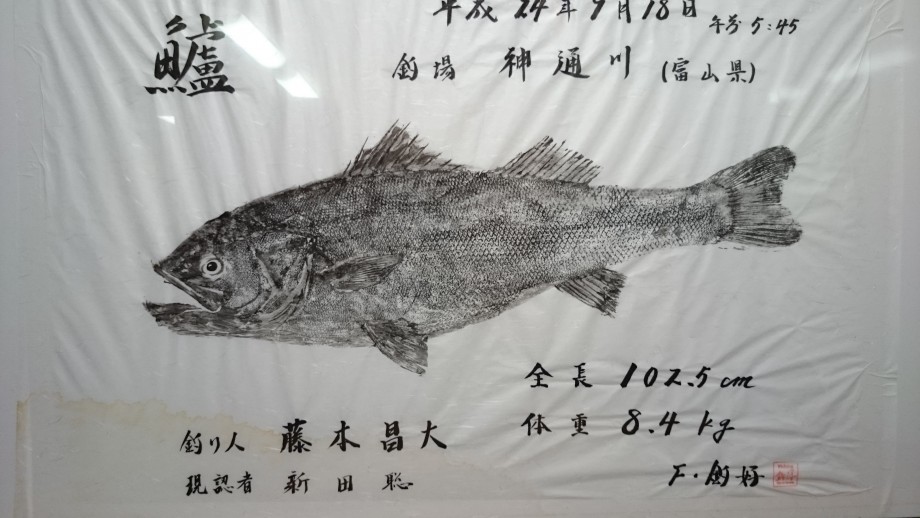 鱸
平成 24年 9月 18日 午前 5:45
釣場 神通川 (富山県)
全長 102.5cm
体重 8.4kg
釣り人 藤本昌大
現認者 新田聡
F・釣好